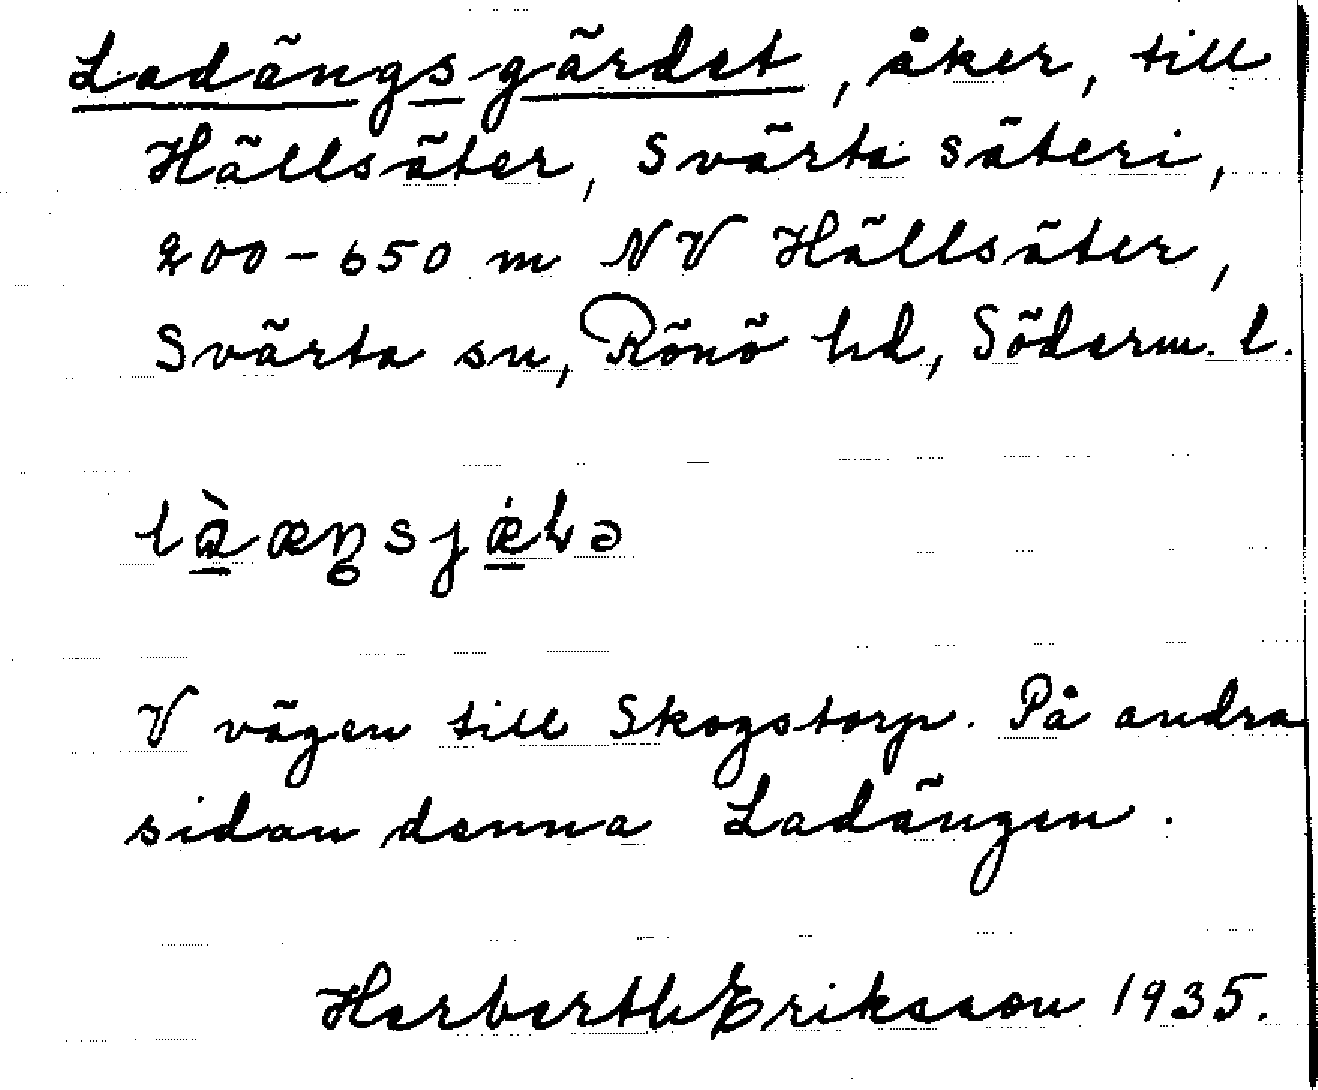 Ladängsgärdet, åker, till
Hällsäter, Svärta säteri,
200-650 m NV Hällsäter,
Svärta sn, Rönö hd, Söderm. l.
V vägen till Skogstorp. På andra
sidan denna Ladängen.
Herbert Eriksson 1935.